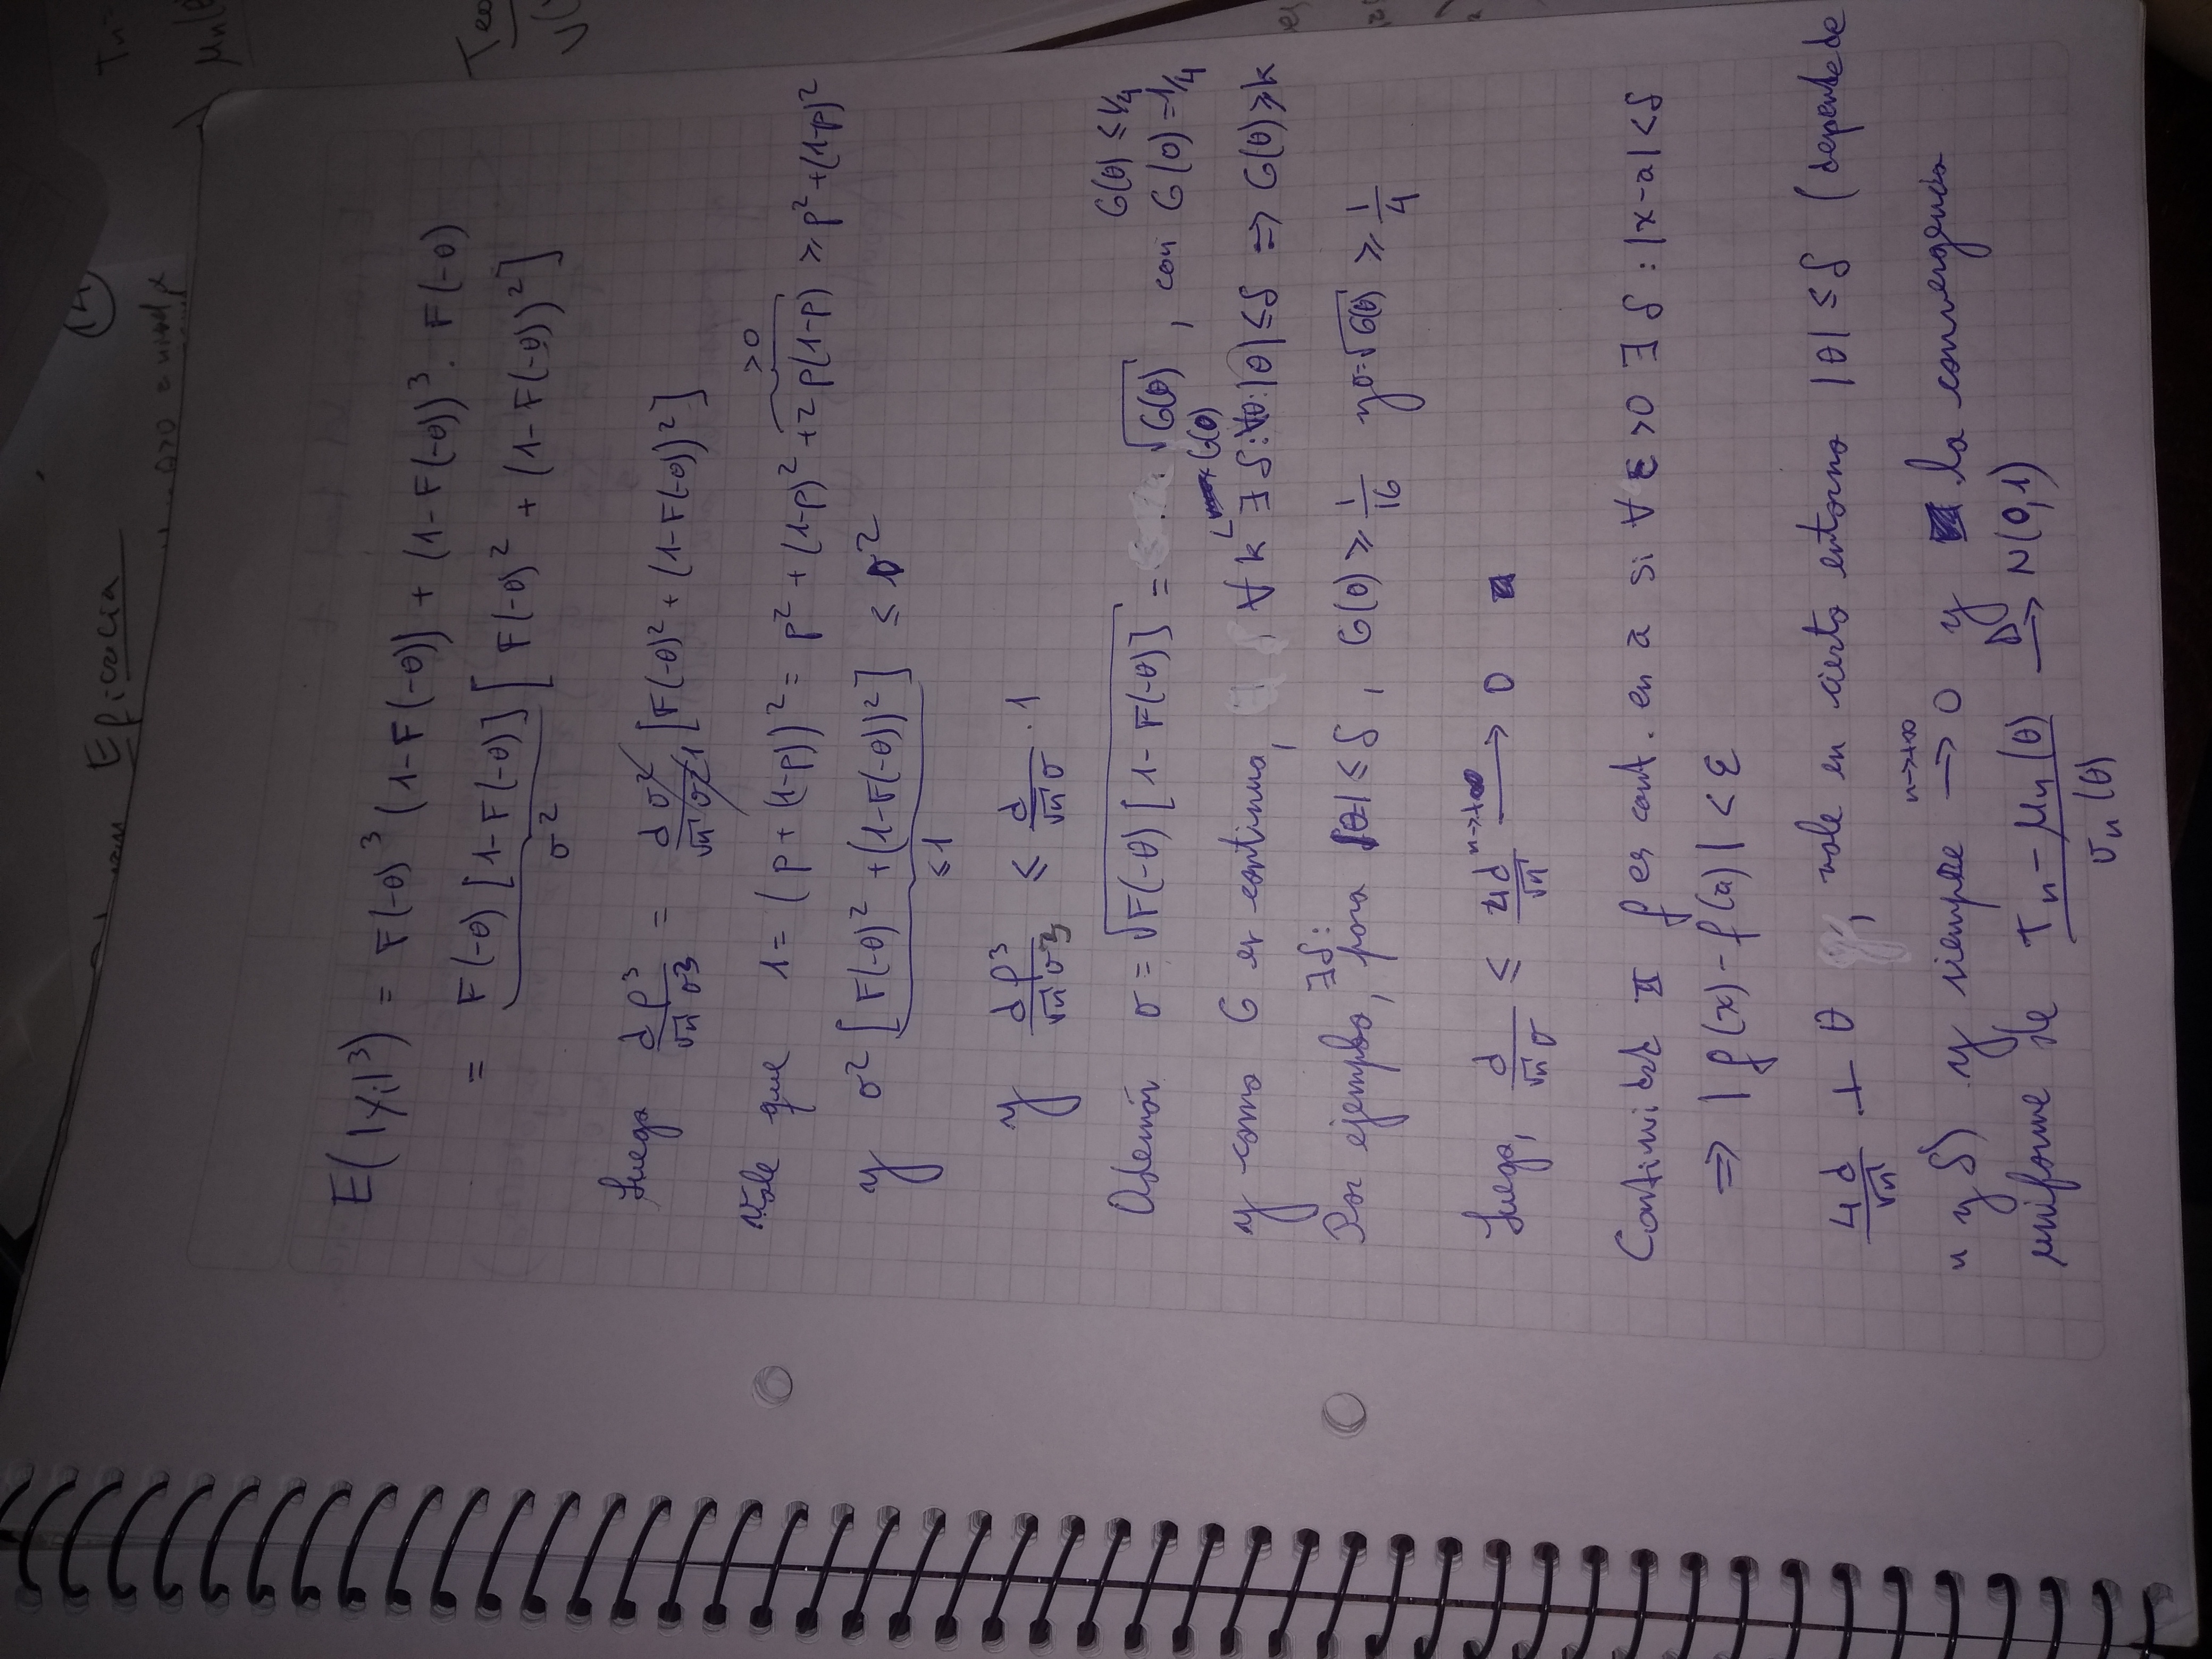 Eficacia
E(|Yi|³) = F(-θ)³ (1-F(-θ)) + (1-F(-θ))³. F(-θ)
= F(-θ) [1-F(-θ)] [F(-θ)² + (1-F(-θ))²]
σ²
Luego d/√n ρ³/σ³ = d σ²/√n σ³ [F(-θ)² + (1-F(-θ))²]
>0
Vale que 1 = (p + (1-p))² = p² + (1-p)² + 2p(1-p) ≥ p² + (1-p)²
y σ² [F(-θ)² + (1-F(-θ))²] ≤ σ²
≤1
y d/√n ρ³/σ³ ≤ d/√n σ . 1
G(θ) ≤ 1/4
Además σ = √F(-θ) [1-F(-θ)] = √G(θ) , con G(0) = 1/4
y como G es continua, ∀ k < G(0) ∃ δ: ∀θ: |θ| ≤ δ ⇒ G(θ) ≥ k
Por ejemplo, ∃δ: para |θ| ≤ δ, G(θ) ≥ 1/16 y σ = √G(θ) ≥ 1/4
Luego, d/√n σ ≤ 4d/√n n→+∞ → 0
Continuidad f es cont. en a si ∀ ε > 0 ∃ δ : |x-a| < δ
⇒ |f(x) - f(a)| < ε
4d/√n ⊥ θ, vale en cierto entorno |θ| ≤ δ (depende de
n y δ) y siempre n→+∞ → 0 y la convergencia
uniforme de Tn - μn(θ)/σn(θ) D→ N(0,1)